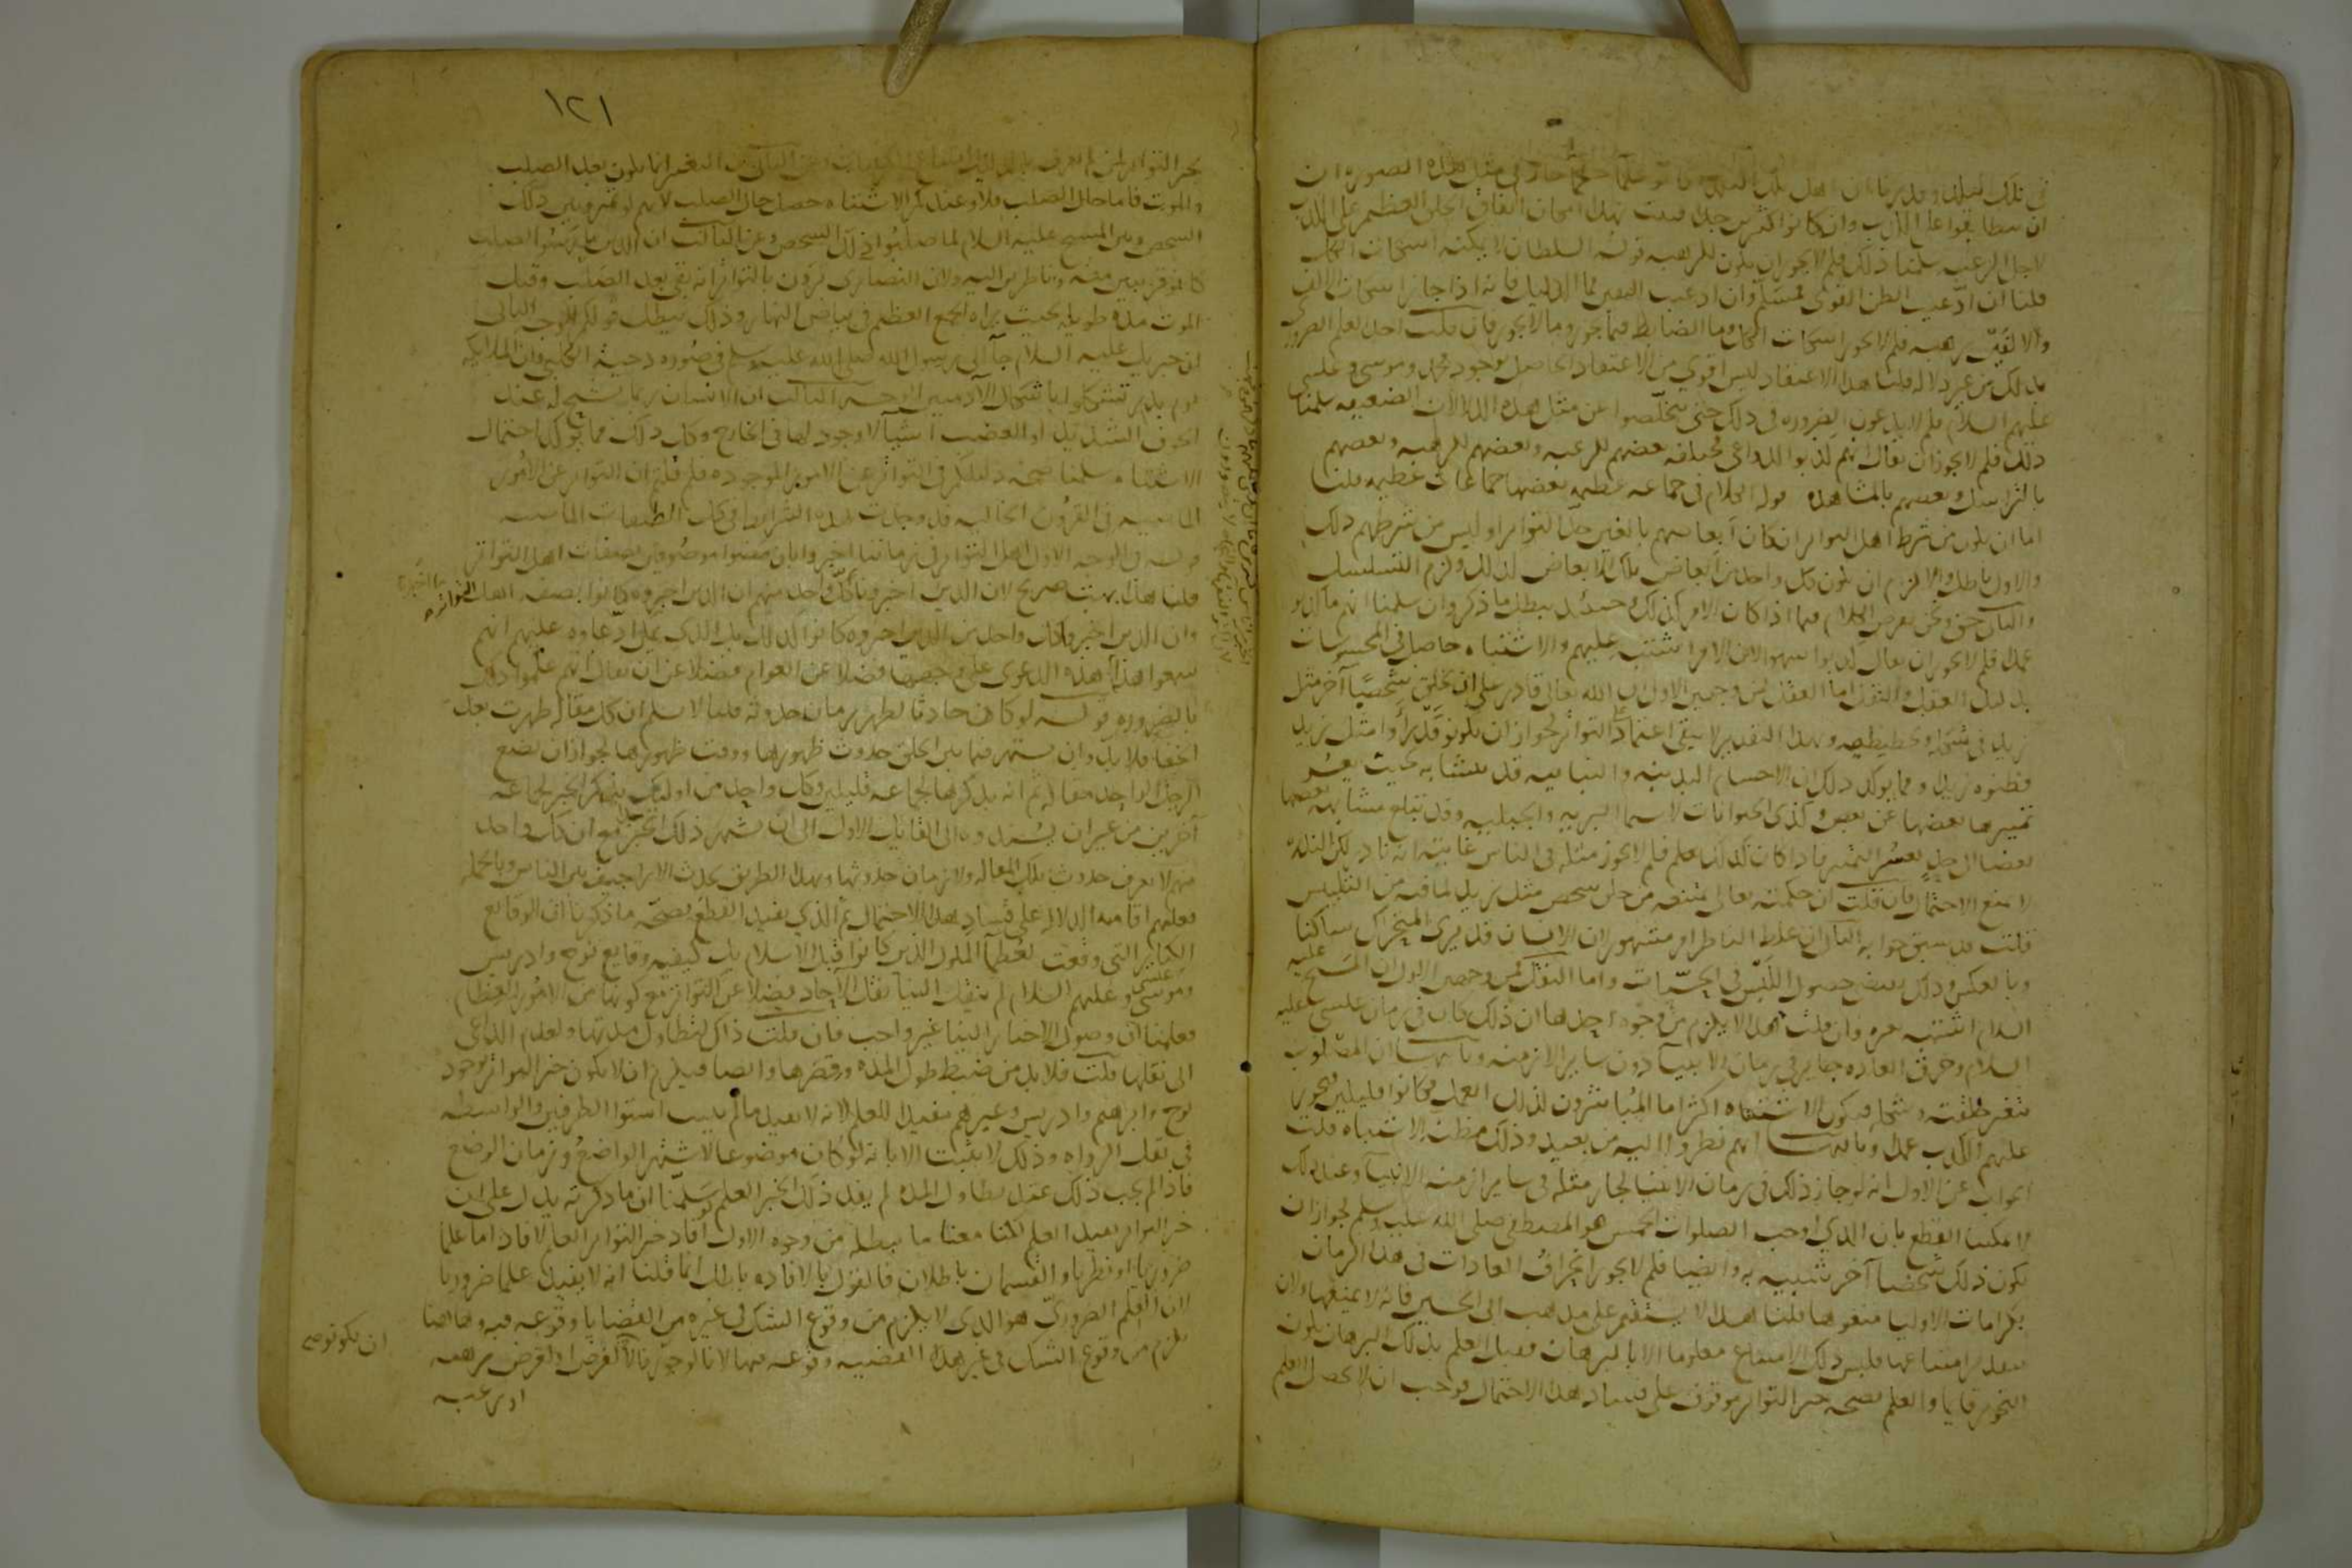 في تلك البلدة وقدرنا ان اهل تلك البلدة كانوا خلقا عظيما جاز في مثل هذه الصورة ان
ان يتطابقوا على الكذب وان كانوا كثيرين جدا فثبت بهذا امكان اتفاق الخلق العظيم على الكذب
لاجل الرغبة سلمنا ذلك فلم لا يجوز ان يكون للرهبة قوله السلطان لا يمكنه اسكات الكل
قلنا ان ادعيت الظن القوي فمسلم وان ادعيت اليقين فما الدليل فانه اذا جاز اسكات الالف
والالفين برهبة فلم لا يجوز اسكات الكل وما الضابط فيما يجوز وما لا يجوز فان قلت اجد العلم الضروري
بذلك من غير دلالة قلنا هذا الاعتقاد ليس اقوى من الاعتقاد الحاصل بوجود محمد وموسى وعيسى
عليهم السلام فلم لا يدعون الضرورة في ذلك حتى يتخلصوا عن مثل هذه الدلالة الضعيفة سلمنا
ذلك فلم لا يجوز ان يقال انهم كذبوا لدواعي مختلفة بعضهم للرغبة وبعضهم للرهبة وبعضهم
بالتراسل وبعضهم بالمشاهدة قوله الكلام في جماعة عظيمة بعضها جماعات عظيمة قلنا
اما ان يكون من شرط اهل التواتر ان كان ابعاضهم بالغين حد التواتر او ليس من شرطهم ذلك
والاول باطل والا لزم ان يكون كل واحد من ابعاض تلك الابعاض كذلك ولزم التسلسل
والثاني حق ونحن نفرض الكلام فيما اذا كان الامر كذلك وحينئذ يبطل ما ذكره وان سلمنا انهم ما كذبوا
عمدا فلم لا يجوز ان يقال كذبوا سهوا لان الامر اشتبه عليهم والاشتباه حاصل في المحسوسات
بدليل العقل والنقل اما العقل فمن وجهين الاول ان الله تعالى قادر على ان يخلق شخصا آخر مثل
زيد في شكله وتخطيطه وبهذا التقدير لا يبقى اعتماد على التواتر لجواز ان يكونوا قد رأوا مثل زيد
فظنوه زيدا ومما يؤكد ذلك ان الاجسام المعدنية والنباتية قد تتشابه بحيث يعسر
تمييزها بعضها عن بعض وكذى الحيوانات لا سيما البرية والجبلية وقد تبلغ مشابهة بعضها
بعضا الى حد يعسر التمييز فاذا كان كذلك فلم لا يجوز مثله في الناس غايته انه نادر لكن الندرة
لا تمنع الاحتمال فان قلت ان حكمته تعالى تمنعه من خلق شخص مثل زيد لما فيه من التلبيس
قلت قد سبق جوابه الثاني ان غلط الناظر امر مشهور لان الانسان قد يرى المتحرك ساكنا
وبالعكس وذلك يقتضي حصول اللبس في الحسيات واما النقل فمن وجهين الاول ان المسيح عليه
السلام اشتبه بغيره فان قلت هذا لا يلزم من وجوه احدها ان ذلك كان في زمان عيسى عليه
السلام وخرق العادة جائز في زمان الانبياء دون ساير الازمنة وثانيها ان المصلوب
تتغير خلقته وشكله فيكون الاشتباه اكثر اما المباشرون لذلك العمل فكانوا قليلين فيجوز
عليهم الكذب عمدا وثالثها انهم نظروا اليه من بعيد وذلك مظنة الاشتباه قلت
الجواب عن الاول انه لو جاز ذلك في زمان الانبياء لجاز مثله في ساير ازمنة الانبياء وعند ذلك
لا يمكننا القطع بان الذي اوجب الصلوات الخمس هو المصطفى صلى الله عليه وسلم لجواز ان
يكون ذلك شخصا آخر شبيه به وايضا فلم لا يجوز انخراق العادات في هذا الزمان
بكرامات الاوليا منعوها قلنا هذا لا يستقيم على مذهب ابي الحسين فانه لا يمنعها ولان
بتقدير امتناعها فليس ذلك الامتناع معلوما الا بالبرهان فقبل العلم بذلك البرهان يكون
التجويز قائما والعلم بصحة خبر التواتر موقوف على فساد هذا الاحتمال فوجب ان لا يحصل العلم
١٢١
بخبر التواتر لمن لم يعرف بالدليل امتناع الكرامات وعن الثاني ان التغير انما يكون بعد الصلب
والموت فاما حال الصلب فلا وعندكم الاشتباه حصل حال الصلب لانهم لو ميزوا بين ذلك
الشخص وبين المسيح عليه السلام لما صلبوا ذلك الشخص وعن الثالث ان الذين باشروا الصلب
كانوا قريبين منه وناظرين اليه ولان النصارى يروون بالتواتر انه بقي بعد الصلب وقبل
الموت مدة طويلة بحيث يراه الجمع العظيم في بياض النهار وذلك يبطل قولكم الوجه الثاني
ان جبريل عليه السلام جاء الى رسول الله صلى الله عليه وسلم في صورة دحية الكلبي وان الملايكة
يوم بدر تشكلوا باشكال الآدميين الوجه الثالث ان الانسان ربما يشبح له عند
الخوف الشديد او الغضب اشياء لا وجود لها في الخارج وكل ذلك مما يؤكد احتمال
الاشتباه سلمنا صحة دليلكم في التواتر عن الامور الموجودة فلم قلتم ان التواتر عن الامور
الماضية في القرون الخالية قد وجدت هذه الشرايط في كل الطبقات الماضية
قوله في الوجه الاول اهل التواتر في زماننا اخبروا بان مضوا موصوفين بصفات اهل التواتر
قلنا هذا بهت صريح لان الذين اخبرونا كل واحد منهم ان الذين اخبروه كانوا بصفة اهل التواتر
وان الذين اخبروا كل واحد من الذين اخبروه كانوا كذلك بل الذي يمكن ادعاوه عليهم انهم
سمعوا هذا هذه الدعوى على وجهها فضلا عن العوام فضلا عن ان يقال انهم علموا ذلك
بالضرورة قوله لو كان حادثا لظهر زمان حدوثه قلنا لا نسلم ان كل مقالة ظهرت بعد
الخفا فلا بد وان يشتهر فيما بين الخلق حدوث ظهورها ووقت ظهورها لجواز ان يضع
الرجل الواحد مقالة ثم انه يذكرها لجماعة قليلين وكل واحد من اولئك يذكر الخبر لجماعة
آخرين من غير ان يسندوه الى القايل الاول الى ان يشتهر ذلك الخبر مع ان كل واحد
منهم لا يعرف حدوث تلك المقالة ولا زمان حدوثها وبهذا الطريق تحدث الاراجيف بين الناس وبالجملة
فعليهم اقامة الدلالة على فساد هذا الاحتمال ثم الذي يفيد القطع بصحة ما ذكرنا ان الوقايع
الكباير التي وقعت لعظماء الملوك الذين كانوا قبل الاسلام بل كيفية وقايع نوح وادريس
وموسى وعيسى عليهم السلام لم ينقل الينا نقل الآحاد فضلا عن التواتر مع كونها من الامور العظام
فعلمنا ان وصول الاخبار الينا غير واجب فان قلت ذاك لتطاول مدتها ولعدم الداعي
الى نقلها قلت فلا بد من ضبط طول المدة وقصرها وايضا فيلزم ان لا يكون خبر التواتر بوجود
نوح وابرهيم وادريس وغيرهم مفيدا للعلم لانه لا يفيد ما لم يثبت استوا الطرفين والواسطة
في نقل الرواة وذلك لا يثبت الا بانه لو كان موضوعا لاشتهر الواضع وزمان الوضع
فاذا لم يجب ذلك عند تطاول المدة لم يفد ذلك الخبر العلم سلمنا ان ما ذكرته يدل على ان
خبر التواتر يفيد العلم لكن معنا ما يبطله من وجوه الاول افاد خبر التواتر العلم لافاد اما علما
ضروريا او نظريا والقسمان باطلان فالقول بالافادة باطل انما قلنا انه لا يفيد علما ضروريا
لان العلم الضروري هو الذي لا يلزم من وقوع الشك في غيره من القضايا وقوعه فيه وهاهنا
يلزم من وقوع الشك في غير هذه القضية وقوعه فيها لانا لو جوزنا ان يكذبوا لا لغرض او لغرض من رهبة
او رغبة